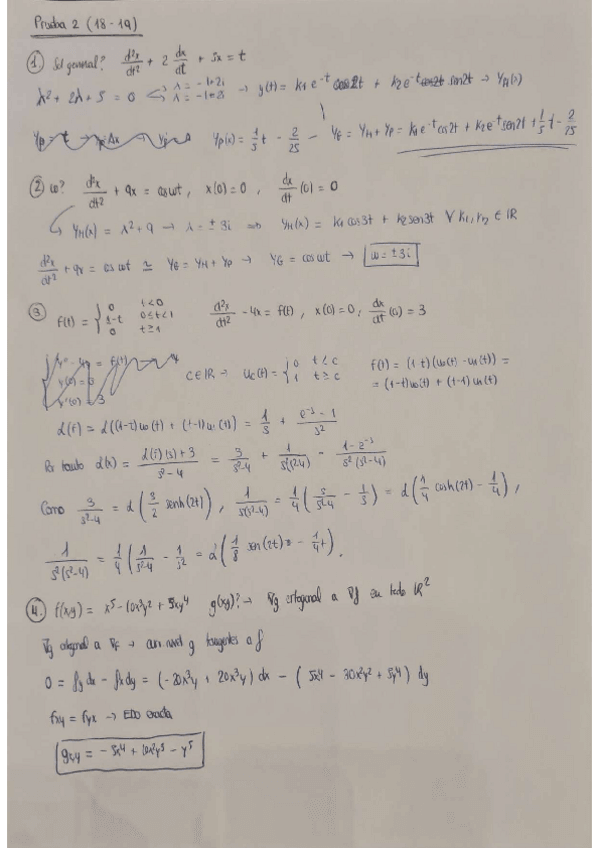 Prueba 2 (18-19)
① Sol general? d²x/dt² + 2 dx/dt + 5x = t
λ² + 2λ + 5 = 0 → λ = -1+2i, λ = -1-2i → y(t) = k1 e^-t cos2t + k2 e^-t sen2t → YH(x)
Yp = t → Yp(x) = 1/5 t - 2/25 - YG = YH + YP = k1 e^-t cos2t + k2 e^-t sen2t + 1/5 t - 2/25
② ω? d²x/dt² + 9x = cosωt, x(0) = 0, dx/dt (0) = 0
↳ YH(x) = λ² + 9 → λ = ± 3i ⇒ YH(x) = k1 cos3t + k2 sen3t ∀ k1, k2 ∈ ℝ
d²x/dt² + 9x = cosωt ≃ YG = YH + YP → YG = cosωt → ω = ±3i
③ f(t) = { 0 t<0; 1-t 0≤t<1; 0 t≥1 d²x/dt² - 4x = f(t), x(0) = 0, dx/dt (0) = 3
y(0) = 0
y'(0) = 3
c ∈ ℝ → uc(t) = { 0 t<c; 1 t≥c f(t) = (1-t)(u0(t) - u1(t)) =
= (1-t)u0(t) + (t-1)u1(t)
L(f) = L((1-t)u0(t) + (t-1)u1(t)) = 1/s + (e^-s - 1)/s²
Por tanto L(x) = (L(f)(s) + 3)/(s²-4) = 3/(s²-4) + 1/(s(s²-4)) - (1-e^-s)/(s²(s²-4))
Como 3/(s²-4) = L(3/2 senh(2t)), 1/(s(s²-4)) = 1/4 (s/(s²-4) - 1/s) = L(1/4 cosh(2t) - 1/4),
1/(s²(s²-4)) = 1/4 (1/(s²-4) - 1/s² = L(1/8 sen(2t) - 1/4 t).
④. f(x,y) = x⁵ - 10x³y² + 5xy⁴ g(x,y)? → ∇g ortogonal a ∇f en todo ℝ²
∇g ortogonal a ∇f → curv. nivel g tangentes a f
0 = fy dx - fx dy = (-20x³y + 20x³y) dx - (5x4 - 30x²y² + 5y⁴) dy
fxy = fyx → EDO exacta
gx,y = -5x⁴ + 10x²y³ - y⁵